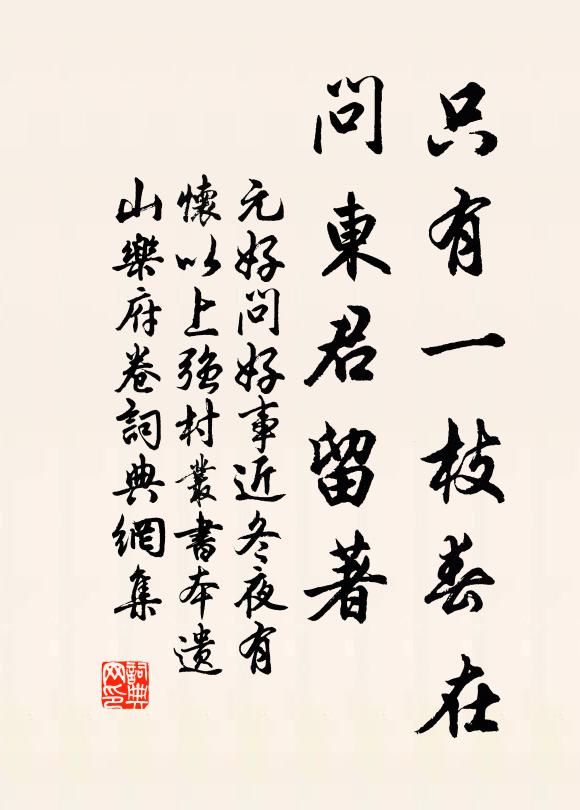 只有一枝春在
問東君留著
元好問好事近冬夜有
懷以上強村叢書本遺
山樂府卷詞典網集
詞典網印